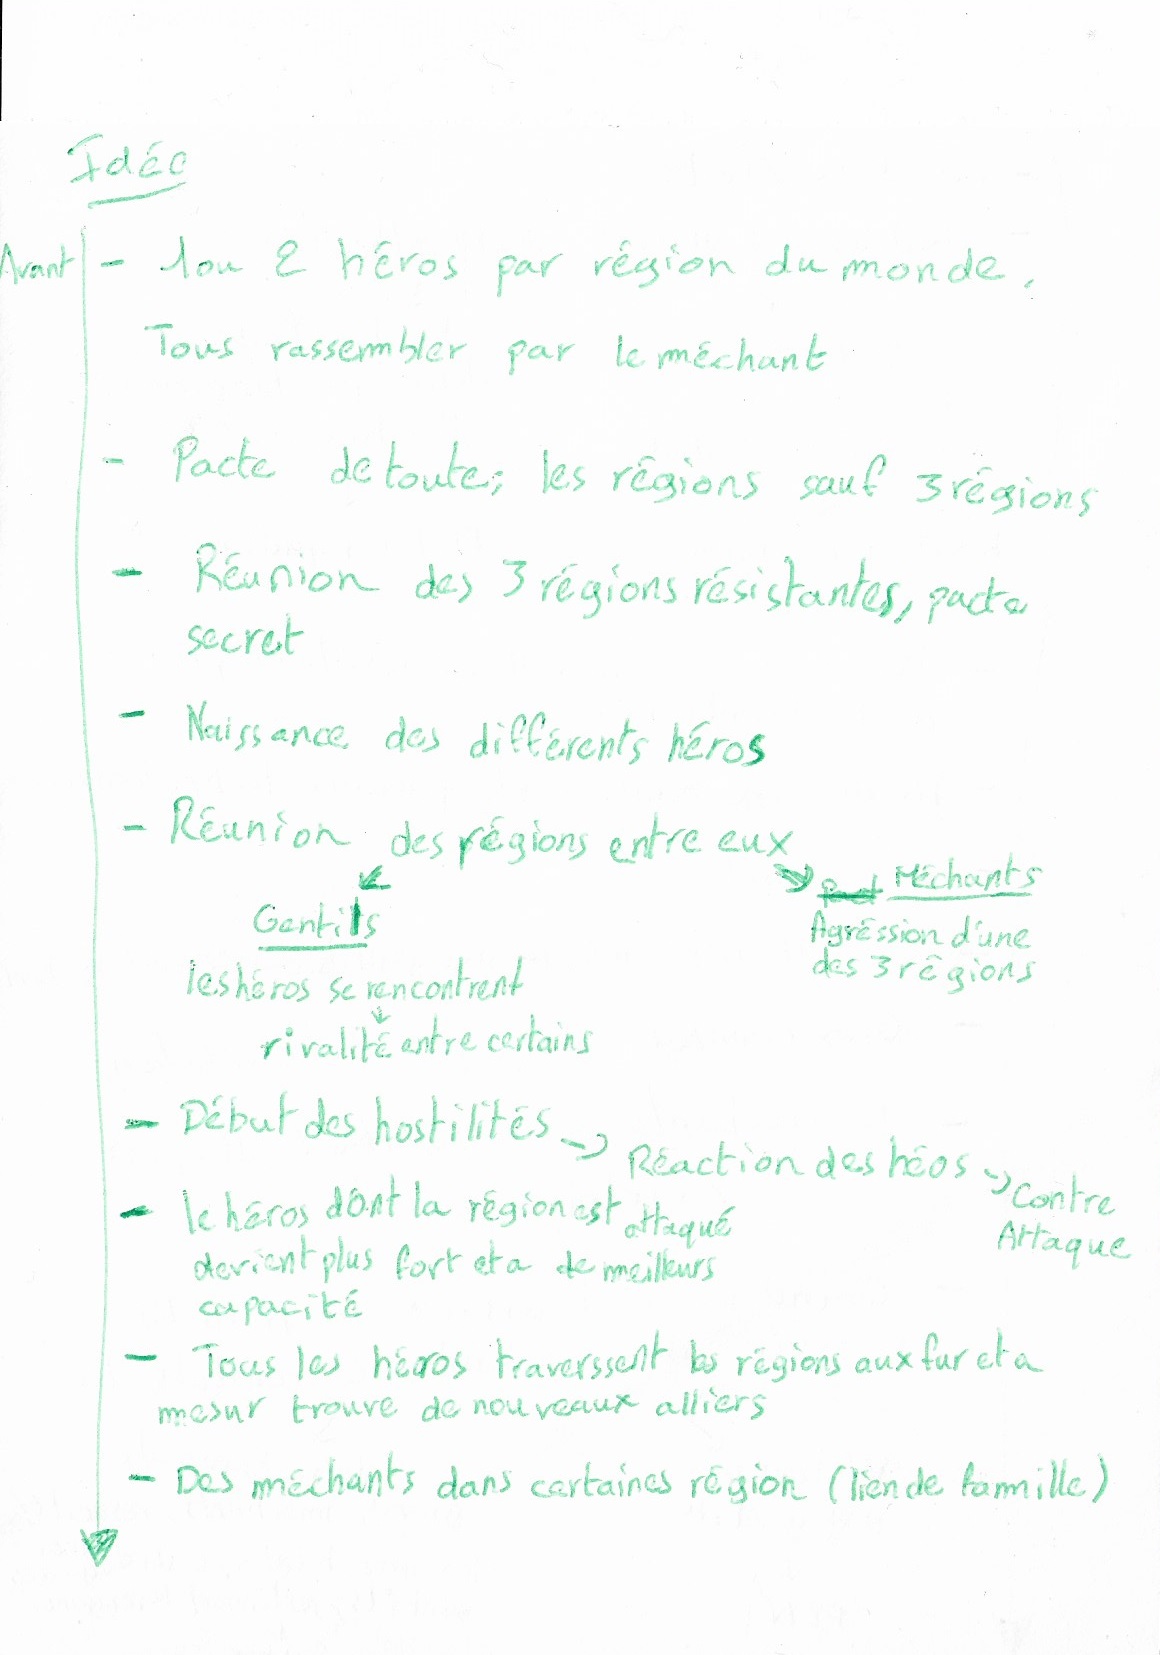 Idée
Avant - 1 ou 2 héros par région du monde.
Tous rassembler par le méchant
- Pacte de toutes les régions sauf 3 régions
- Réunion des 3 régions résistantes, pacte
secret
- Naissance des différents héros
- Réunion des régions entre eux
Méchants
Gentils
Agréssion d'une
des 3 régions
les héros se rencontrent
rivalité entre certains
- Début des hostilités
Réaction des héos
Contre
Attaque
- le héros dont la région est attaqué
devient plus fort et a de meilleurs
capacité
- Tous les héros traverssent les régions aux fur et a
mesur trouve de nouveaux alliers
- Des méchants dans certaines région (lien de famille)